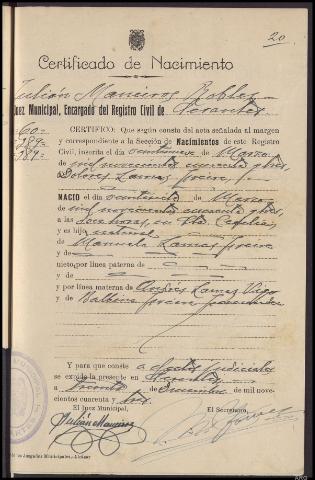 20
Certificado de Nacimiento
Julián Maneiros Robles
Juez Municipal, Encargado del Registro Civil de Serantes
60=
289=
289=
CERTIFICO: Que según consta del acta señalada al margen
y correspondiente a la Sección de Nacimientos de este Registro
Civil, inscrita el día veintinueve de Marzo
de mil novecientos cuarenta y tres,
Dolores Lamas Freire
NACIO el día de Marzo
de mil novecientos cuarenta y tres,
a las doce horas, en
y es hija natural
de Manuela Lamas Freire
y de
nieto por línea paterna de
y de
y por línea materna de Andrés Lamas
y de Balbina Freire
Y para que conste a efectos judiciales
se expide la presente en Serantes
a treinta de Diciembre de mil nove-
cientos cuarenta y tres.
El Juez Municipal, El Secretario,
Julián Maneiros